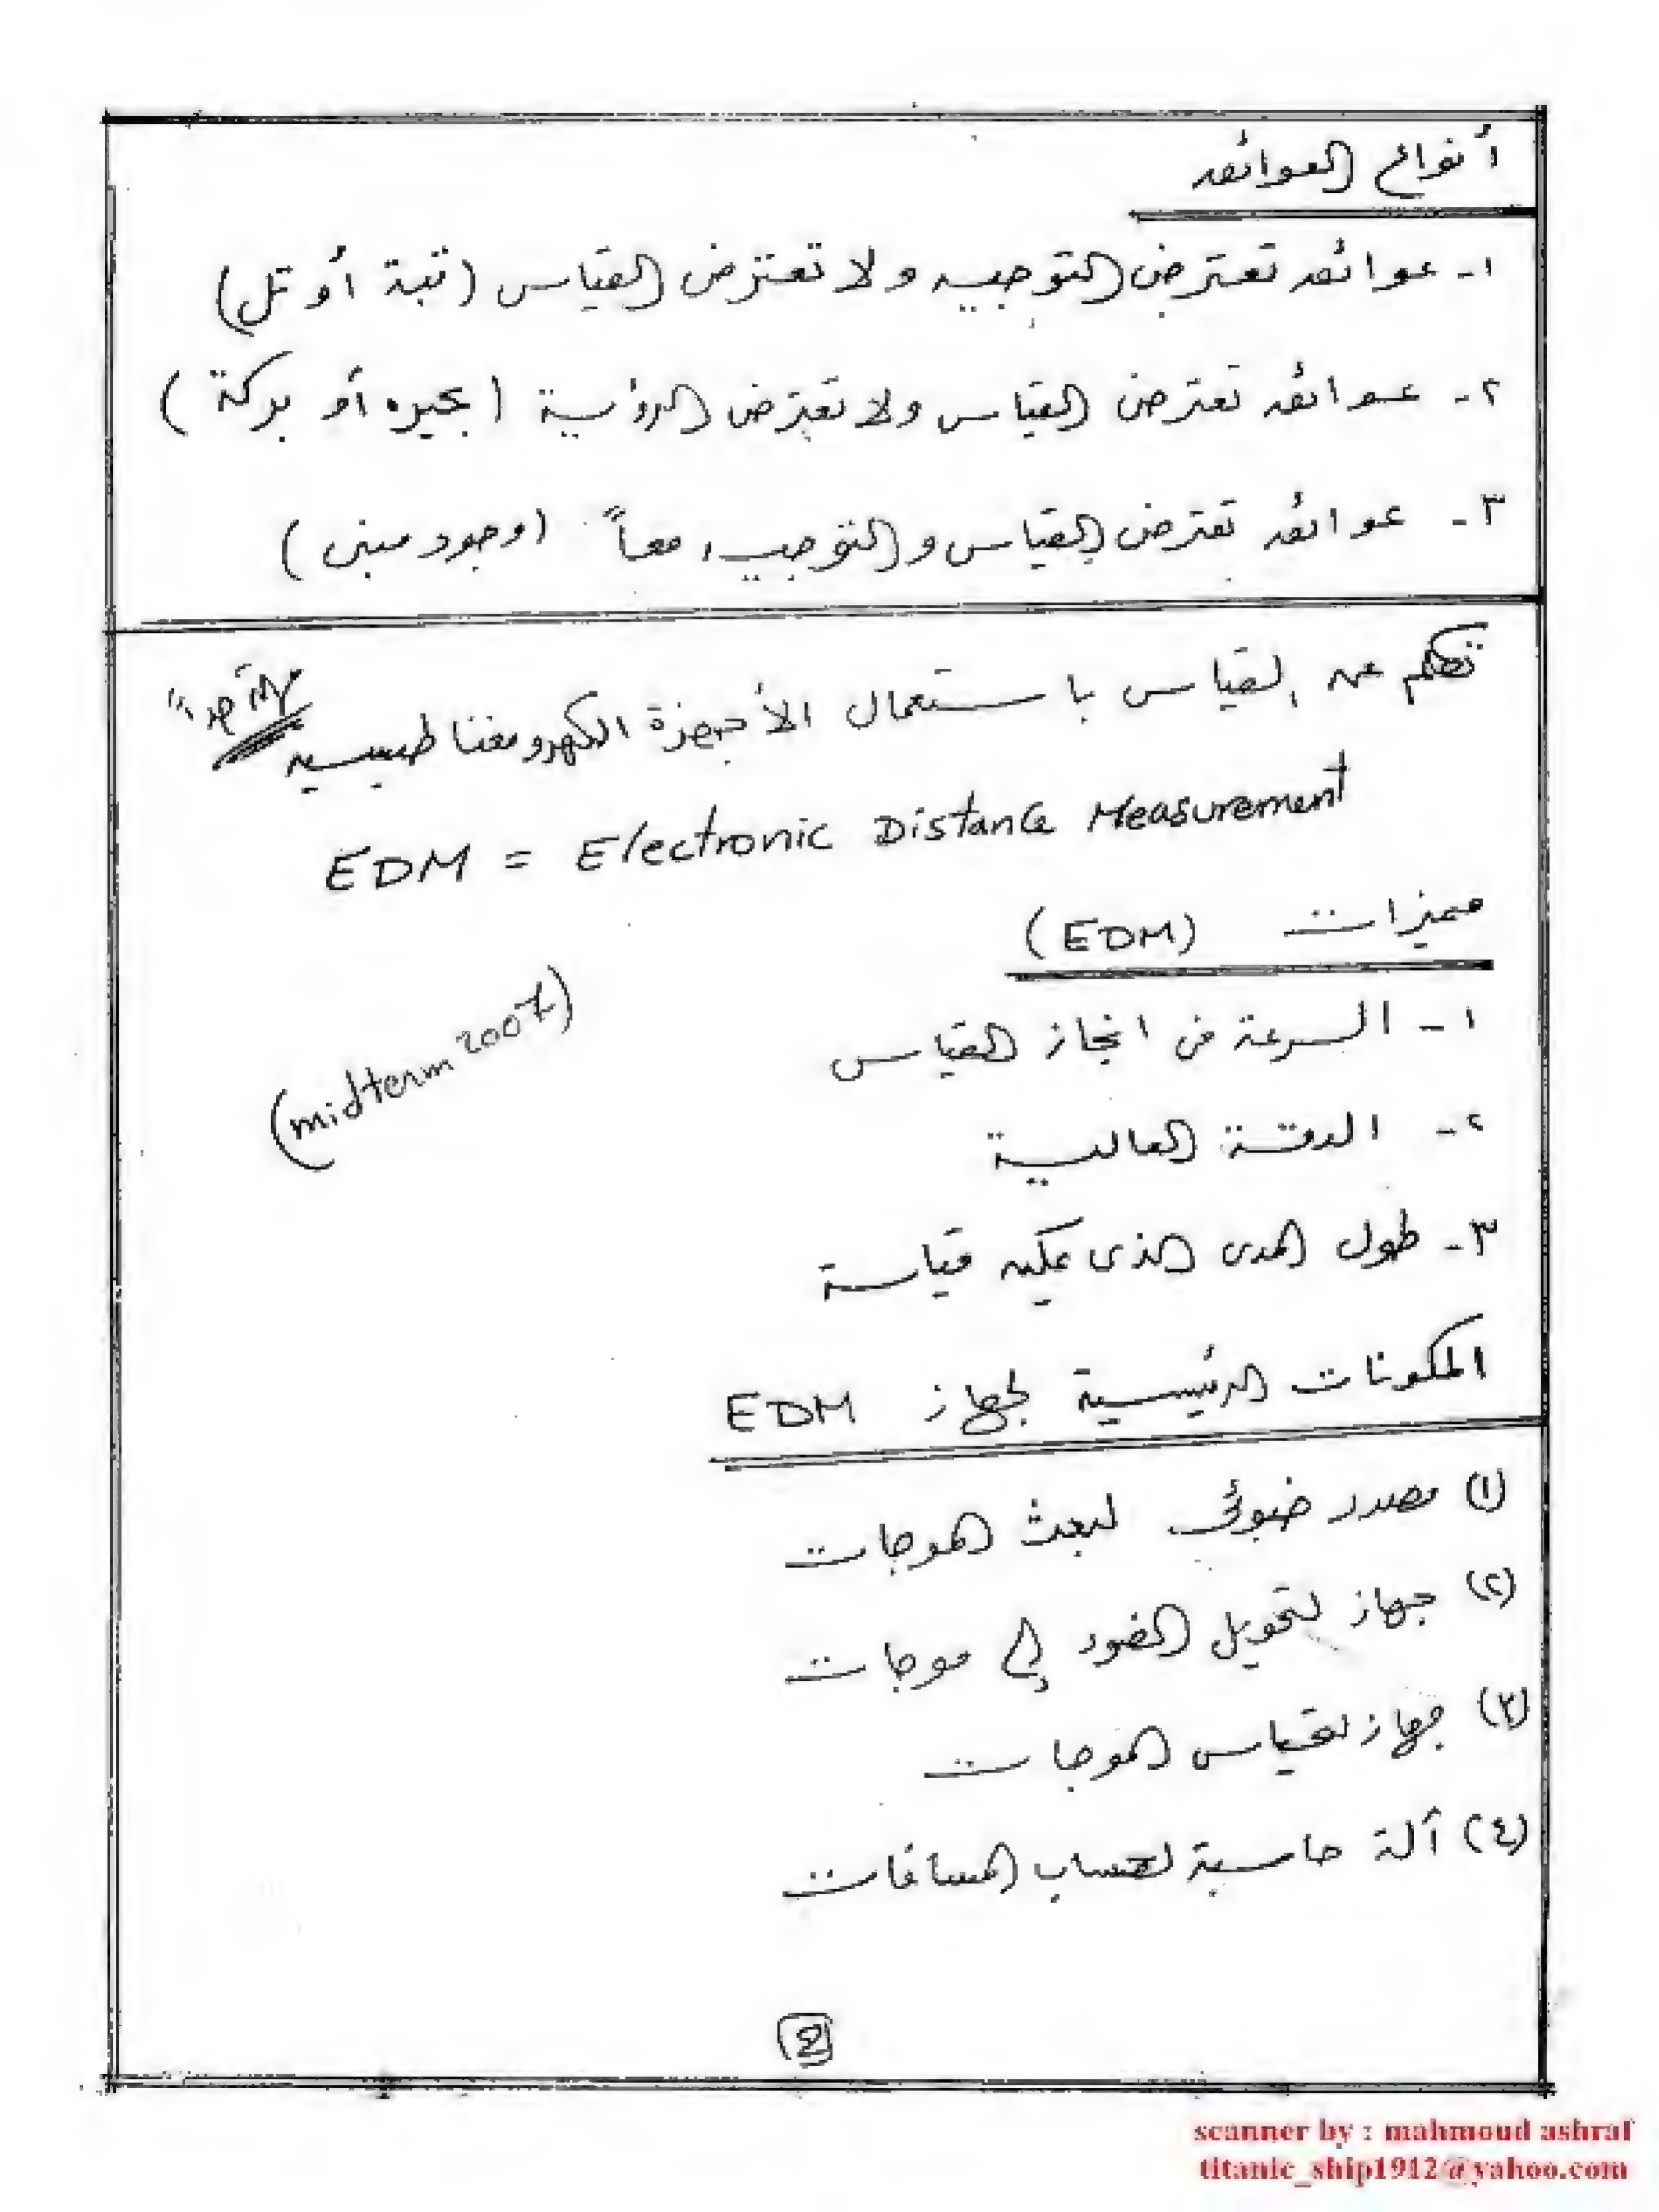 أنواع العوائق
١- عوائق تعترض التوجيه ولا تعترض القياس (تبة أو تل)
٢- عوائق تعترض القياس ولا تعترض الرؤية (بحيره أو بركة)
٣- عوائق تعترض القياس والتوجيه معاً (وجود مبنى)
تكلم عن القياس باستعمال الأجهزة الكهرومغناطيسيه
EDM = Electronic Distance Measurement
مميزات (EDM)
١- السرعة فى انجاز القياس
(midterm 2007)
٢- الدقة العالية
٣- طول المدى الذى يمكن قياسة
المكونات الرئيسية لجهاز EDM
(١) مصدر ضوئى لبعث الموجات
(٢) جهاز لتحويل الضوء إلى موجات
(٣) جهاز لقياس الموجات
(٤) آلة حاسبة لحساب المسافات
2
scanner by : mahmoud ashraf
titanic_ship1912@yahoo.com